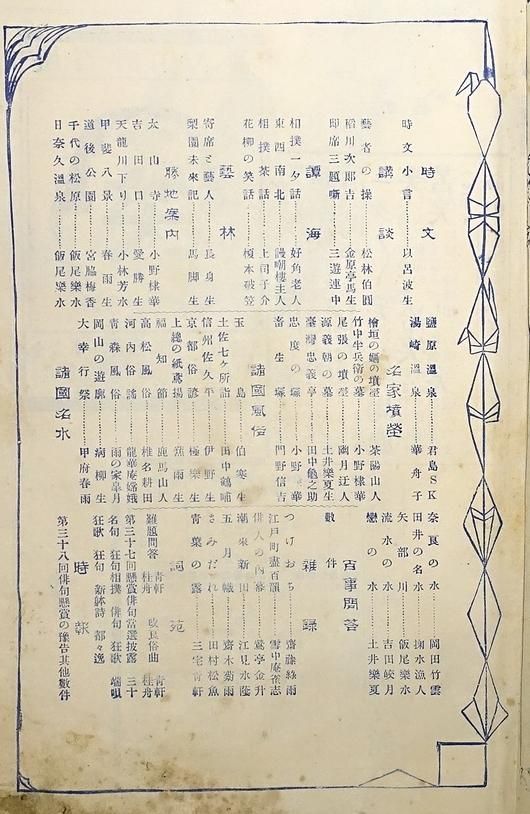 時文
時文小言 以呂波生
講談
藝者の操 松林伯圓
稻川次郎吉 金原亭馬生
即席三題噺 三遊連中
譚海
相撲一夕話 好角老人
東西南北 謾嘲樓主人
相撲茶話 上司子介
花柳の笑話 榎本破笠
藝林
寄席と藝人 長身生
梨園未來記 馬脚生
勝地案内
太山寺 小野棣華
吉田口 愛勝生
天龍川下り 小林芳水
甲斐八景 春雨生
道後公園 宮脇梅香
千代の松原 飯尾樂水
日奈久溫泉 飯尾樂水
鹽原溫泉 君島SK
湯崎溫泉 華舟子
名家墳塋
檜垣の嫗の墳塋 茶陽山人
竹中半兵衛の墓 小野棣華
尾張の墳塋 幽月迂人
源義朝の墓 土井樂夏生
臺灣忠義亭 田中龜之助
忠度の塚 小野棣華
畜生塚 門野信吉
諸國風俗
玉島 伯寒生
土佐七ヶ所詣 田中鶴哺
信州佐久平 伊野生
京都俗諺 極樂生
上總の紙鳶揚 蕉雨生
福知節 鹿馬山人
高松風俗 椎名耕田
河內俗謠 龍華庵嫦娥
青森風俗 雨の家皐月
岡山の遊廓 病柳生
大幸行祭 甲府春雨
諸國名水
奈良の水 岡田竹雲
田井の名水 掬水漁人
矢部川 飯尾樂水
流水の水 吉田皎月
戀の水 土井樂夏
百事問答
數件
雜錄
つげおち 齋藤綠雨
江戸町盡百韻 雪中庵雀志
俳人の內幕 鶯亭金升
潮來新田 江見水蔭
五月幟 齋木菊雨
さみだれ 田村松魚
青葉の露 三宅青軒
詞苑
難題問答 青軒 桂舟 改良俗曲 青軒 桂舟
第三十七回懸賞俳句當選披露 三十
名句 狂句相撲 俳句 狂歌 端唄
狂歌 狂句 新躰詩 都々逸
時報
第三十八回俳句懸賞の豫告其他數件